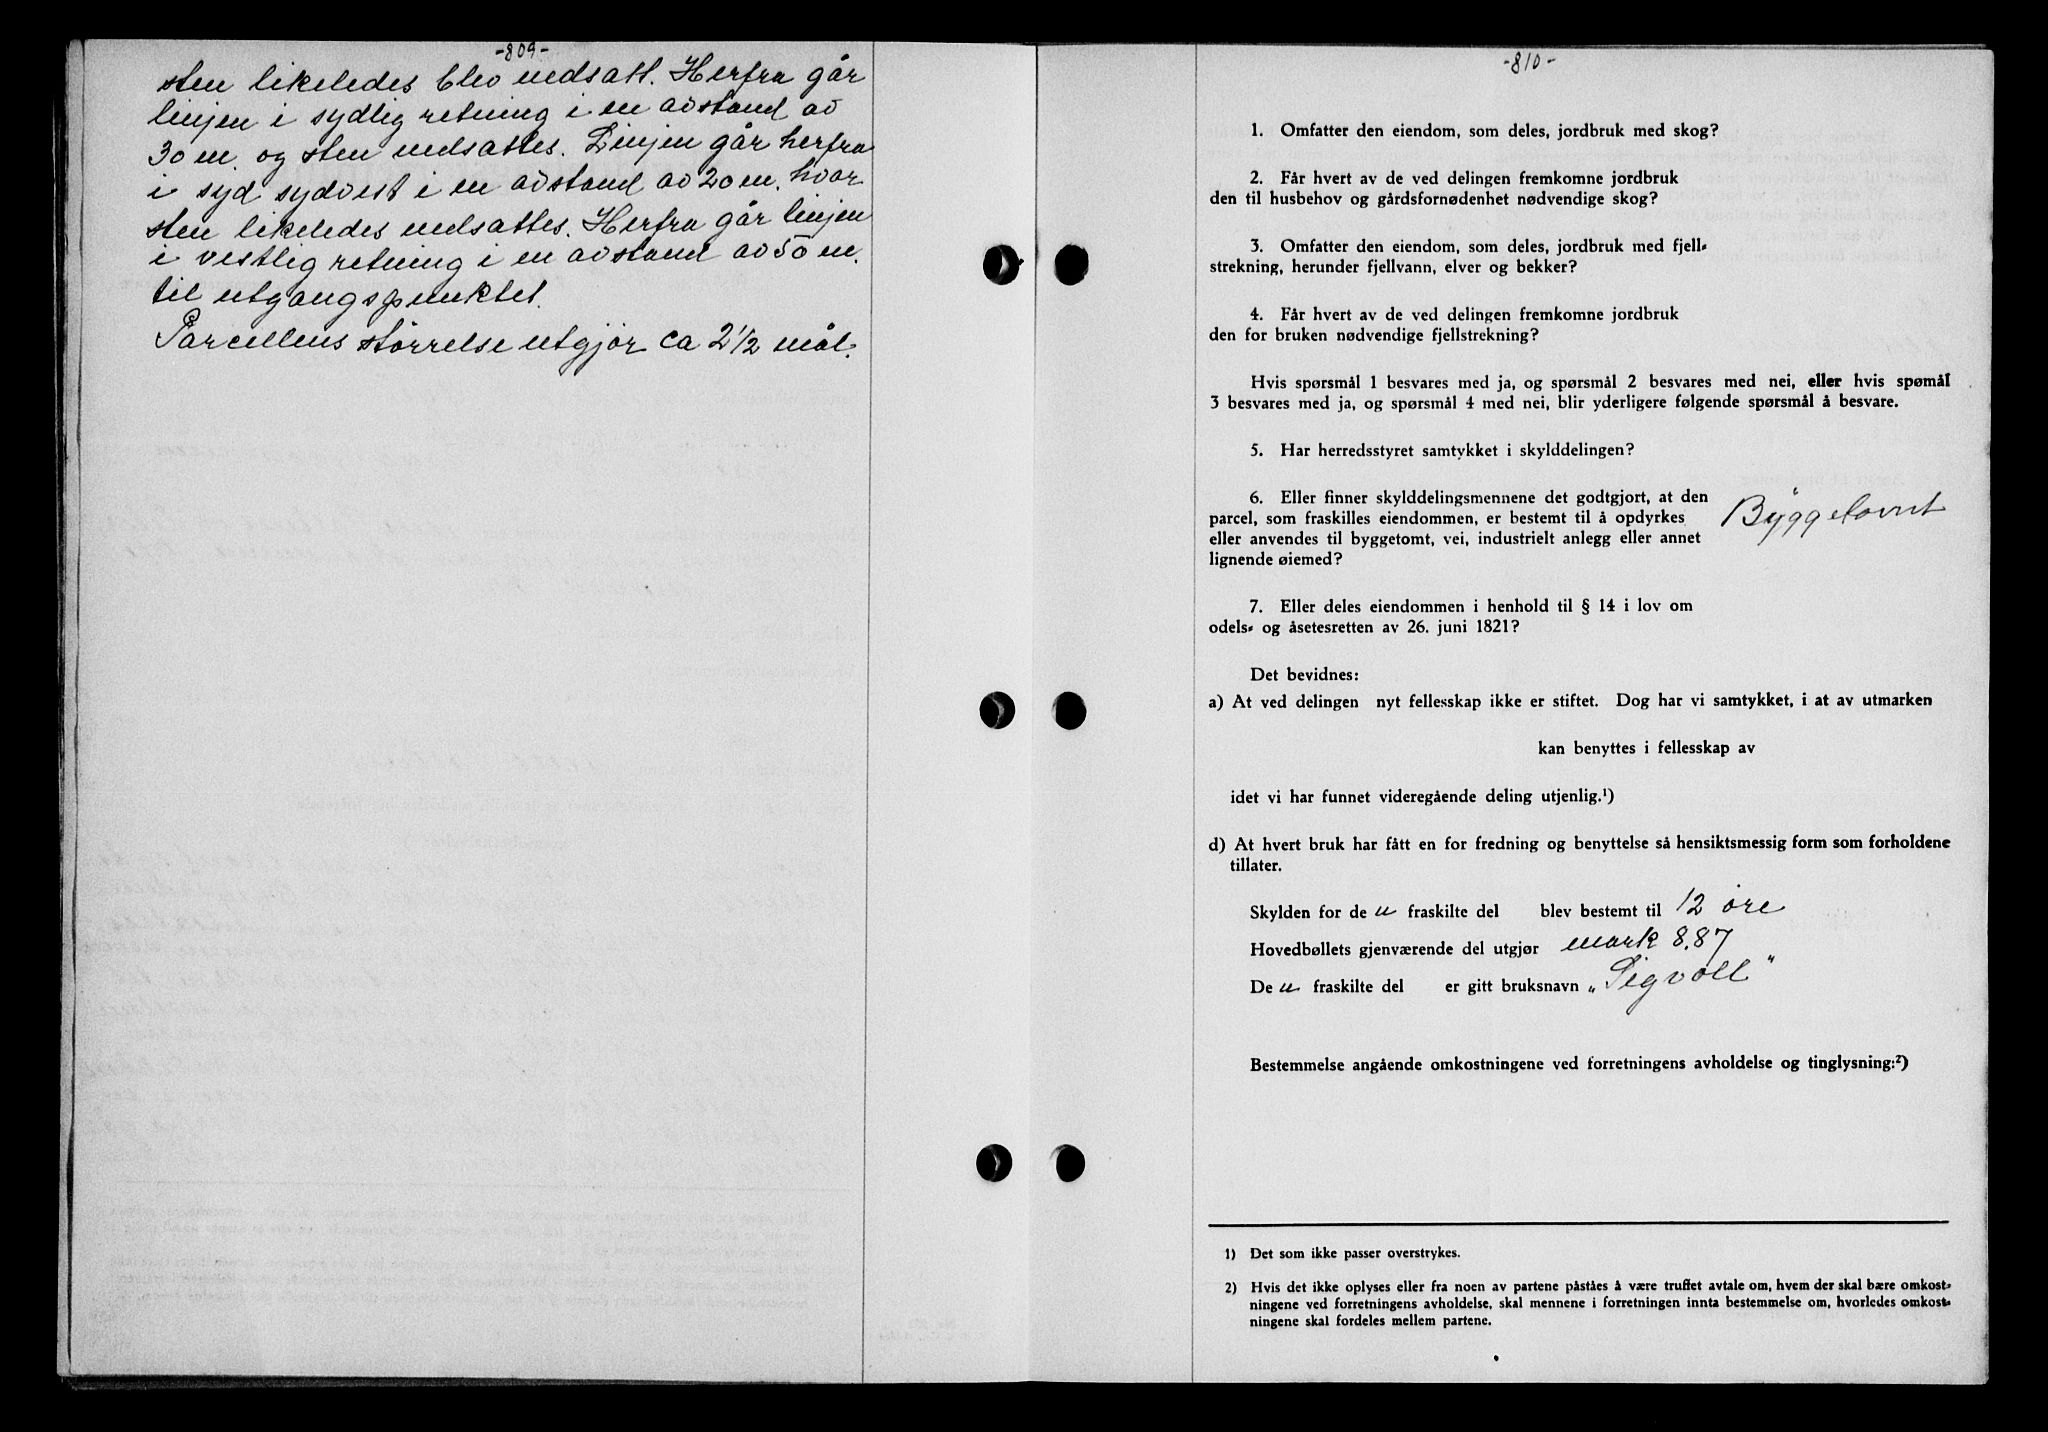 -809-
sten likeledes blev nedsatt. Herfra går
linjen i sydlig retning i en avstand av
30 m. og sten nedsattes. Linjen går herfra
i syd sydvest i en avstand av 20 m. hvor
sten likeledes nedsattes. Herfra går linjen
i vestlig retning i en avstand av 50 m.
til utgangspunktet.
Parcellens størrelse utgjør ca 2 1/2 mål.
-810-
1. Omfatter den eiendom, som deles, jordbruk med skog?
2. Får hvert av de ved delingen fremkomne jordbruk
den til husbehov og gårdsfornødenhet nødvendige skog?
3. Omfatter den eiendom, som deles, jordbruk med fjell-
strekning, herunder fjellvann, elver og bekker?
4. Får hvert av de ved delingen fremkomne jordbruk
den for bruken nødvendige fjellstrekning?
Hvis spørsmål 1 besvares med ja, og spørsmål 2 besvares med nei, eller hvis spømål
3 besvares med ja, og spørsmål 4 med nei, blir yderligere følgende spørsmål å besvare.
5. Har herredsstyret samtykket i skylddelingen?
6. Eller finner skylddelingsmennene det godtgjort, at den
parcel, som fraskilles eiendommen, er bestemt til å opdyrkes
eller anvendes til byggetomt, vei, industrielt anlegg eller annet
lignende øiemed?
Byggetomt
7. Eller deles eiendommen i henhold til § 14 i lov om
odels- og åsetesretten av 26. juni 1821?
Det bevidnes:
a) At ved delingen nyt fellesskap ikke er stiftet. Dog har vi samtykket, i at av utmarken
kan benyttes i fellesskap av
idet vi har funnet videregående deling utjenlig.¹)
d) At hvert bruk har fått en for fredning og benyttelse så hensiktsmessig form som forholdene
tillater.
Skylden for de n fraskilte del blev bestemt til 12 øre
Hovedbøllets gjenværende del utgjør mark 8.87
De n fraskilte del er gitt bruksnavn „Sigvoll"
Bestemmelse angående omkostningene ved forretningens avholdelse og tinglysning:²)
1) Det som ikke passer overstrykes.
2) Hvis det ikke oplyses eller fra noen av partene påståes å være truffet avtale om, hvem der skal bære omkost-
ningene ved forretningens avholdelse, skal mennene i forretningen innta bestemmelse om, hvorledes omkost-
ningene skal fordeles mellem partene.